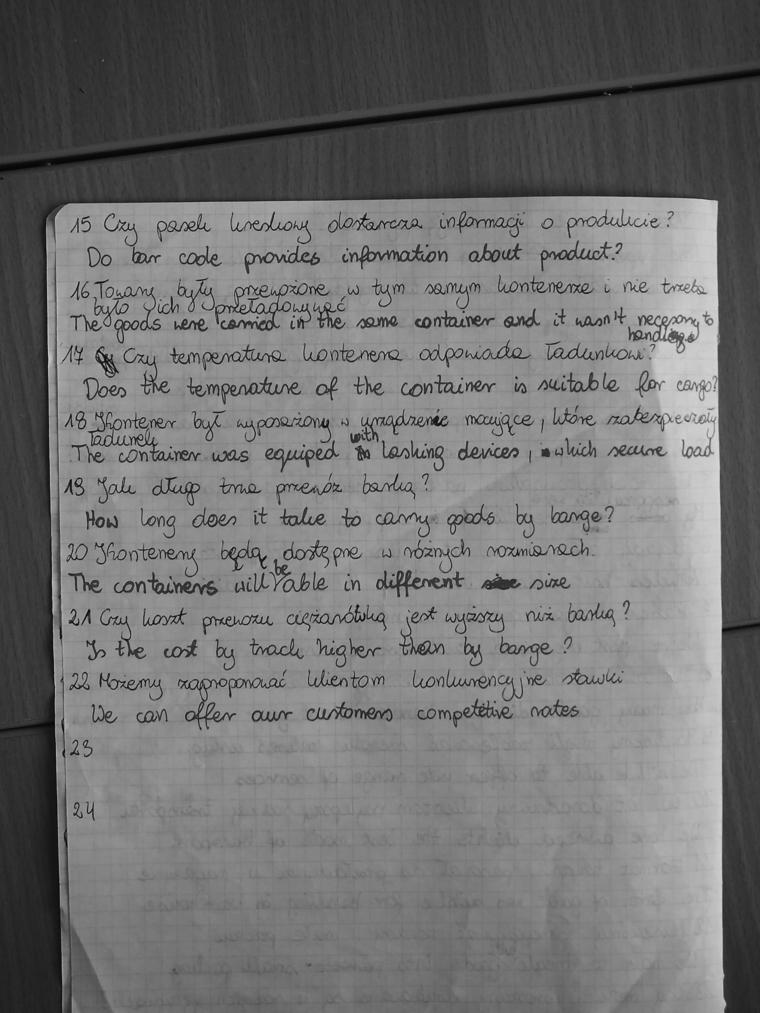 15 Czy pasek kreskowy dostarcza informacji o produkcie?
Do bar code provides information about product?
16 Towary były przewożone w tym samym kontenerze i nie trzeba
było ich przeładowywać
The goods were carried in the same container and it wasn't necesary to
handling
17 Czy temperatura kontenera odpowiada ładunkowi?
Does the temperature of the container is suitable for cargo?
18 Kontener był wyposażony w urządzenie mocujące, które zabezpieczały
ładunek
The container was equiped with lashing devices, which secure load
19 Jak długo trwa przewóz barką?
How long does it take to carry goods by barge?
20 Kontenery będą dostępne w różnych rozmiarach.
The containers will be able in different size
21 Czy koszt przewozu ciężarówką jest wyższy niż barką?
Is the cost by track higher than by barge?
22 Możemy zaproponować klientom konkurencyjne stawki
We can offer our customers competetive rates
23
24